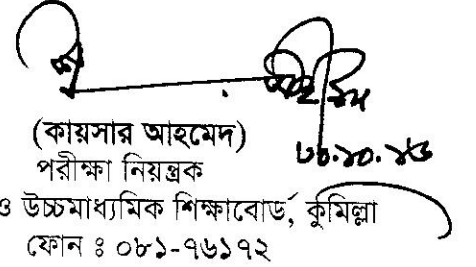 (কায়সার আহমেদ)
পরীক্ষা নিয়ন্ত্রক
ও উচ্চমাধ্যমিক শিক্ষাবোর্ড, কুমিল্লা
ফোন ঃ ০৮১-৭৬১৭২